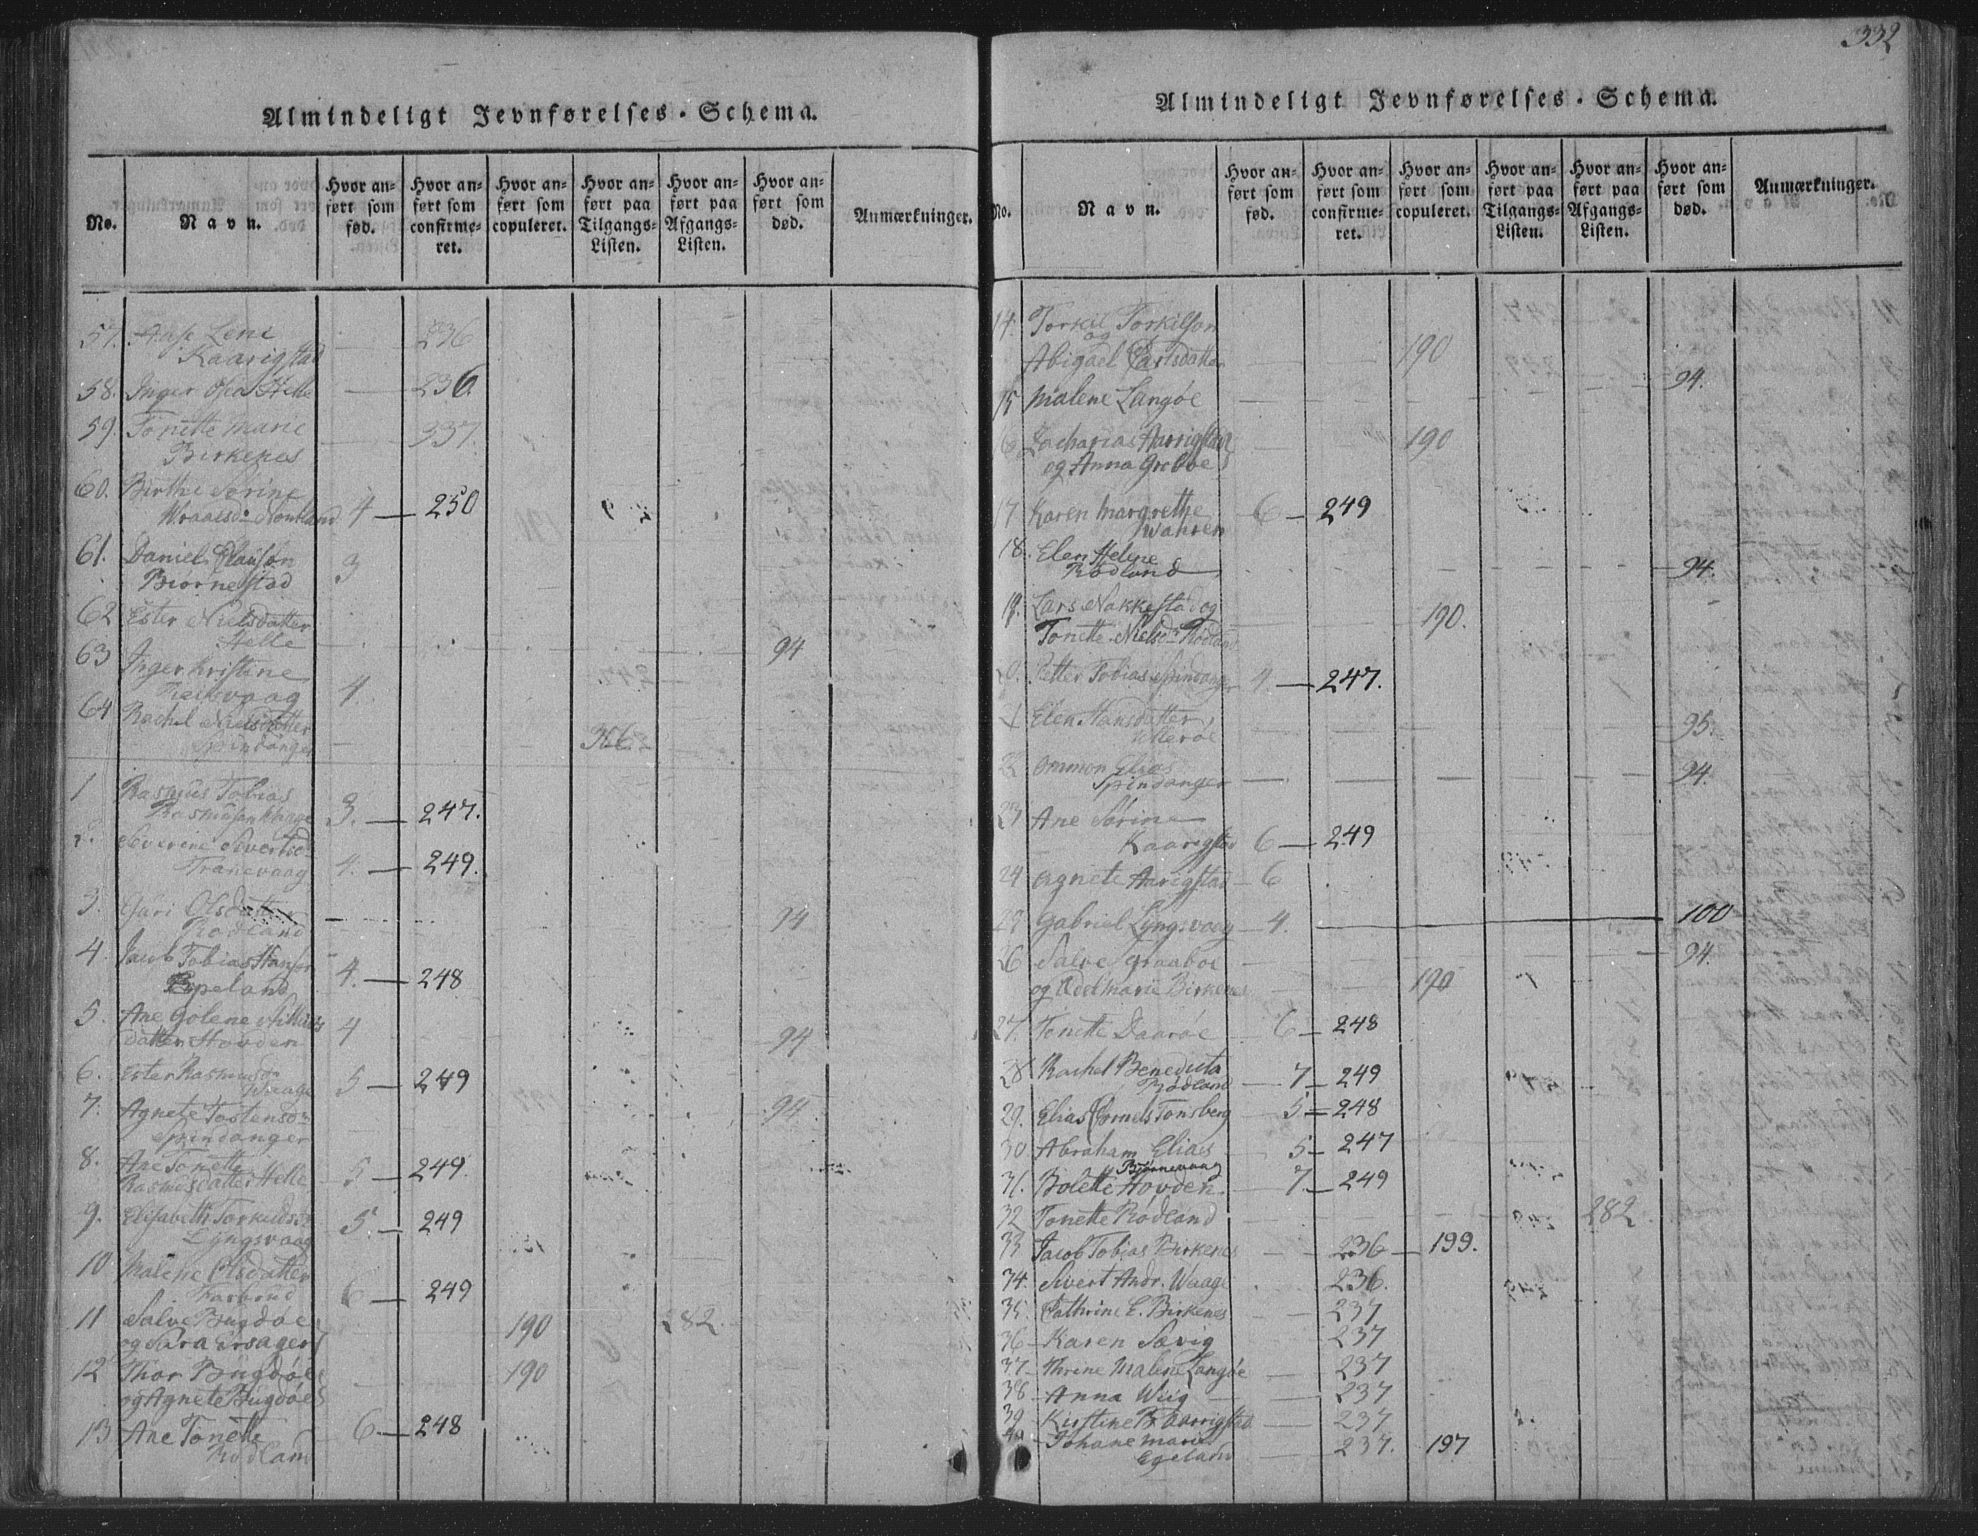 332
Almindeligt Jevnførelses-Schema.
No.
Navn.
Hvor anført som fød.
Hvor anført som confirmeret.
Hvor anført som copuleret.
Hvor anført paa Tilgangs-Listen.
Hvor anført paa Afgangs-Listen.
Hvor anført som død.
Anmærkninger.
57. Lene
Kaarigstad 236
58. Inger Helle 236.
59. Tonette Marie 337.
Birkenes
60. Birthe Serine
4 250
61. Daniel Clauson 3
Biørnestad
62 Ester Nielsdatter
Helle 94
63 Inger Kristine
4.
64 Rachel Nielsdatter
Spindanger 366.
1 Rasmus Tobias
3. 247.
2. Severine Sivertsd
Tranevaag 4. 249.
3. Guri Olsdatter 94
Rødland
4. Jacob Tobias Hanson
Epeland 4. 248
5. Ane Golene
datter Hovden 4 94
6. Ester Rasmusd
Waage 5 249
7. Agnete Tostensd 94
Spindanger
8. Ane Tonette
Rasmusdatter Helle 5 249.
9. Elisabeth Torkildsd
Lyngsvaag 5 249
10 Malene Olsdatter
6 249
11 Salve Bugdøe
og Sara Ersager 190 282.
12 Thor Bugdøe 190
og Agnete Bugdøe
13 Ane Tonette 6 248
Rødland
Almindeligt Jevnførelses-Schema.
No.
Navn.
Hvor anført som fød.
Hvor anført som confirmeret.
Hvor anført som copuleret.
Hvor anført paa Tilgangs-Listen.
Hvor anført paa Afgangs-Listen.
Hvor anført som død.
Anmærkninger.
14. Torkil Torkilson
og
Abigael Carlsdatter 190
15 Malene Langøe 94.
16 Zacharias Aarrigstad 190
og Anna Greboe
17 Karen Margrethe 6 249
Wahren
18. Elen Helene
Rødland 94.
19. Lars Nakkestad og
Tonette Nielsd Rødland 190.
20. Petter Tobias Spindanger 4 247.
21 Elen Hansdatter 95.
Utterøe
22 Ommon Elias 94.
Spindanger
23 Ane Sørine
Kaarigstad 6 249
24 Agnete Aarigstad 6
25 Gabriel Lyngsvaag 4. 100
26 Salve Graaboe 94.
og Edel Marie Birkenes 190
27. Tonette Daarøe 6 248
28 Rachel Benedicta
Rødland 7 249
29. Elias Cornels Tonsberg 5 248
30 Abraham Elias 5 247
Brønnevaag
31. Bolette Hovden 7. 249
32 Tonette Rødland 282
33 Jacob Tobias Birkenes 236 199.
34. Sivert Andr. Waage 236.
35 Cathrine E. Birkenes 237
36 Karen Sævig 237
37 Thrine Malene Langøe 237
38 Anna Wiig 237
39 Kirstine B. Aarrigstad 237
40 Johane Marie 237. 197
Egeland